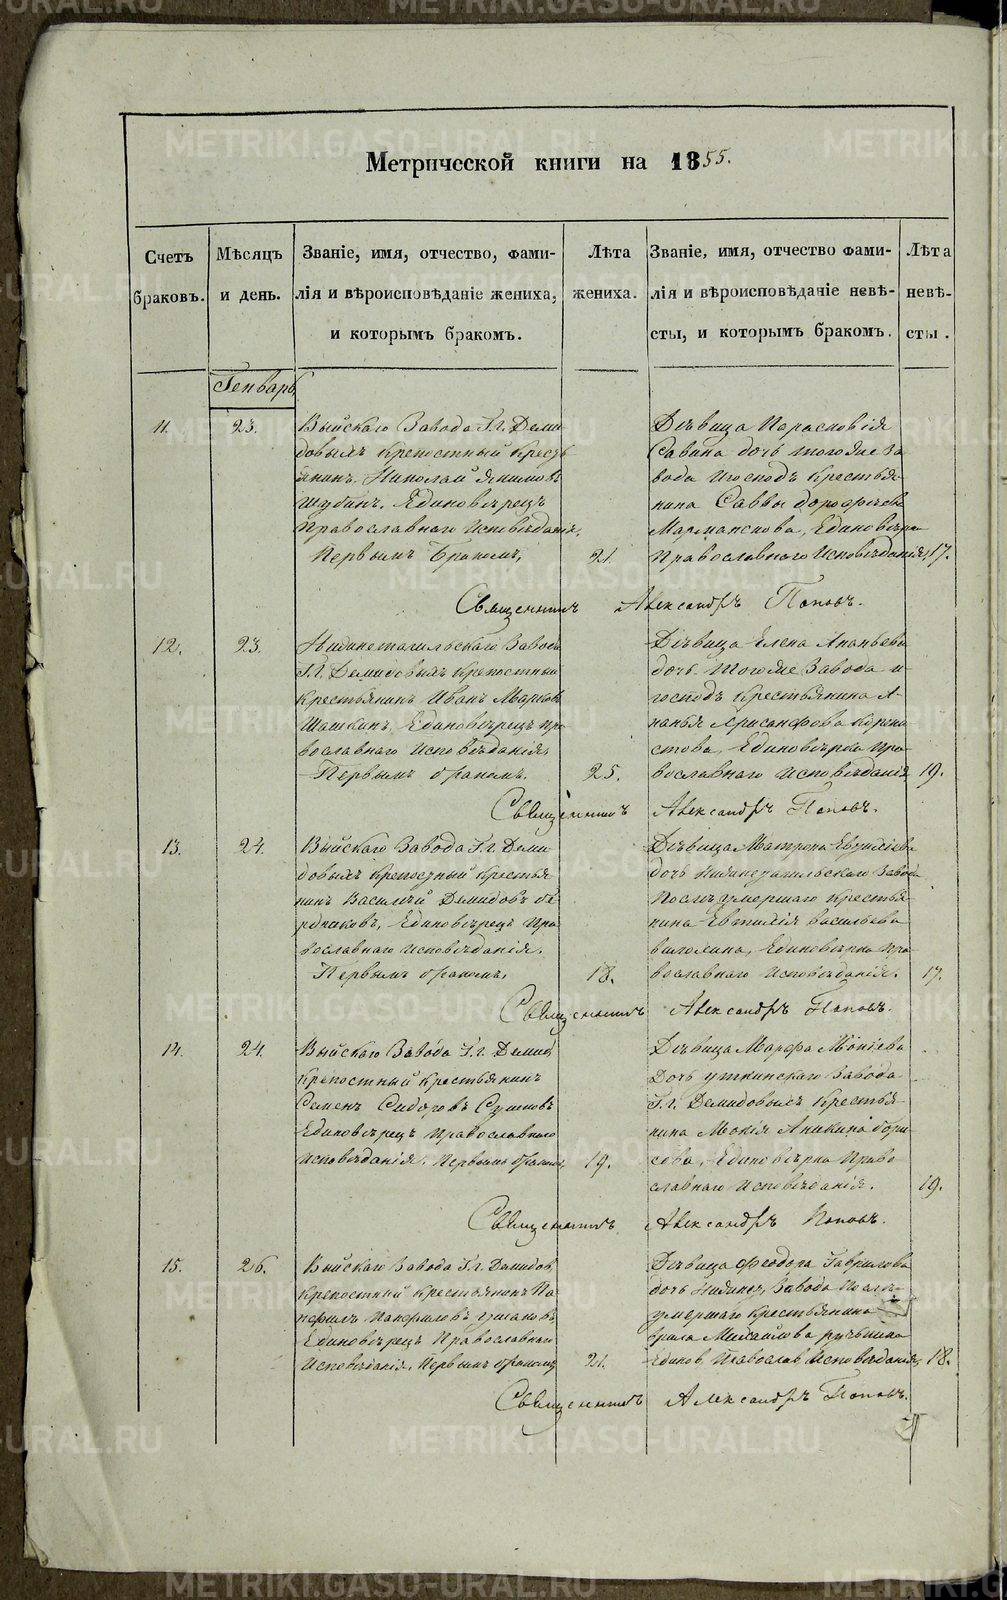 Метрической книги на 1855.
Счетъ браковъ.
Мѣсяцъ и день.
Званіе, имя, отчество, фами-
лія и вѣроисповѣданіе жениха,
и которымъ бракомъ.
Лѣта жениха.
Званіе, имя, отчество фами-
лія и вѣроисповѣданіе невѣ-
сты, и которымъ бракомъ.
Лѣта невѣ-
сты.
Генварь
11.
23.
Выйскаго Завода Г.г. Деми-
довыхъ крепостный Кресть
янинъ Николай Якимовъ
Шубинъ, Единовѣрецъ
Православнаго Исповѣданія,
Первымъ Бракомъ,
21.
Дѣвица Парасковія
Савина дочь тогоже За
вода и господъ Крестья-
нина Саввы Дорофѣева
Единовѣрка
Православнаго Исповѣданія,
17.
Священникъ Александръ Поповъ.
12.
23.
Нижнетагильскаго Завода
Г.г. Демидовыхъ крепостный
крестьянинъ Иванъ Марковъ
Шашкинъ, Единовѣрецъ пра
вославнаго Исповѣданія,
Первымъ бракомъ.
25.
Дѣвица Елена Ананьева
дочь тогоже Завода и
господъ Крестьянина А-
нанья Хрисанфова
Единовѣрка Пра-
вославнаго Исповѣданія
19.
Священникъ Александръ Поповъ.
13.
24.
Выйскаго Завода Г.г. Деми-
довыхъ крепостный крестья-
нинъ Василій Демидовъ
Единовѣрецъ Пра
вославнаго Исповѣданія.
Первымъ бракомъ,
18.
Дѣвица Матрона Евтиміева
дочь Нижнетагильскаго Завода
Послѣ умершаго крестья-
нина Евтимія Васильева
Единовѣрка Пра
вославнаго Исповѣданія.
17.
Священникъ Александръ Поповъ.
14.
24.
Выйскаго Завода Г.г. Демид.
крепостный крестьянинъ
Семенъ Сидоровъ
Единовѣрецъ Православнаго
Исповѣданія. Первымъ бракомъ,
19.
Дѣвица Марфа Мокіева
Дочь уткинскаго Завода
Г.г. Демидовыхъ Крестья-
нина Мокія Аникина Бори
сова, Единовѣрка Право
славнаго Исповѣданія.
19.
Священникъ Александръ Поповъ.
15.
26.
Выйскаго Завода Г.г. Демидов.
крепостный Крестьянинъ Па
Панфиловъ
Единовѣрецъ Православнаго
Исповѣданія, Первымъ бракомъ
21.
Дѣвица Феодора Гаврилова
дочь Завода Послѣ
умершаго крестьянина
врила Михайлова
Единов. Православ. Исповѣданія,
18.
Священникъ Александръ Поповъ.
METRIKI.GASO-URAL.RU